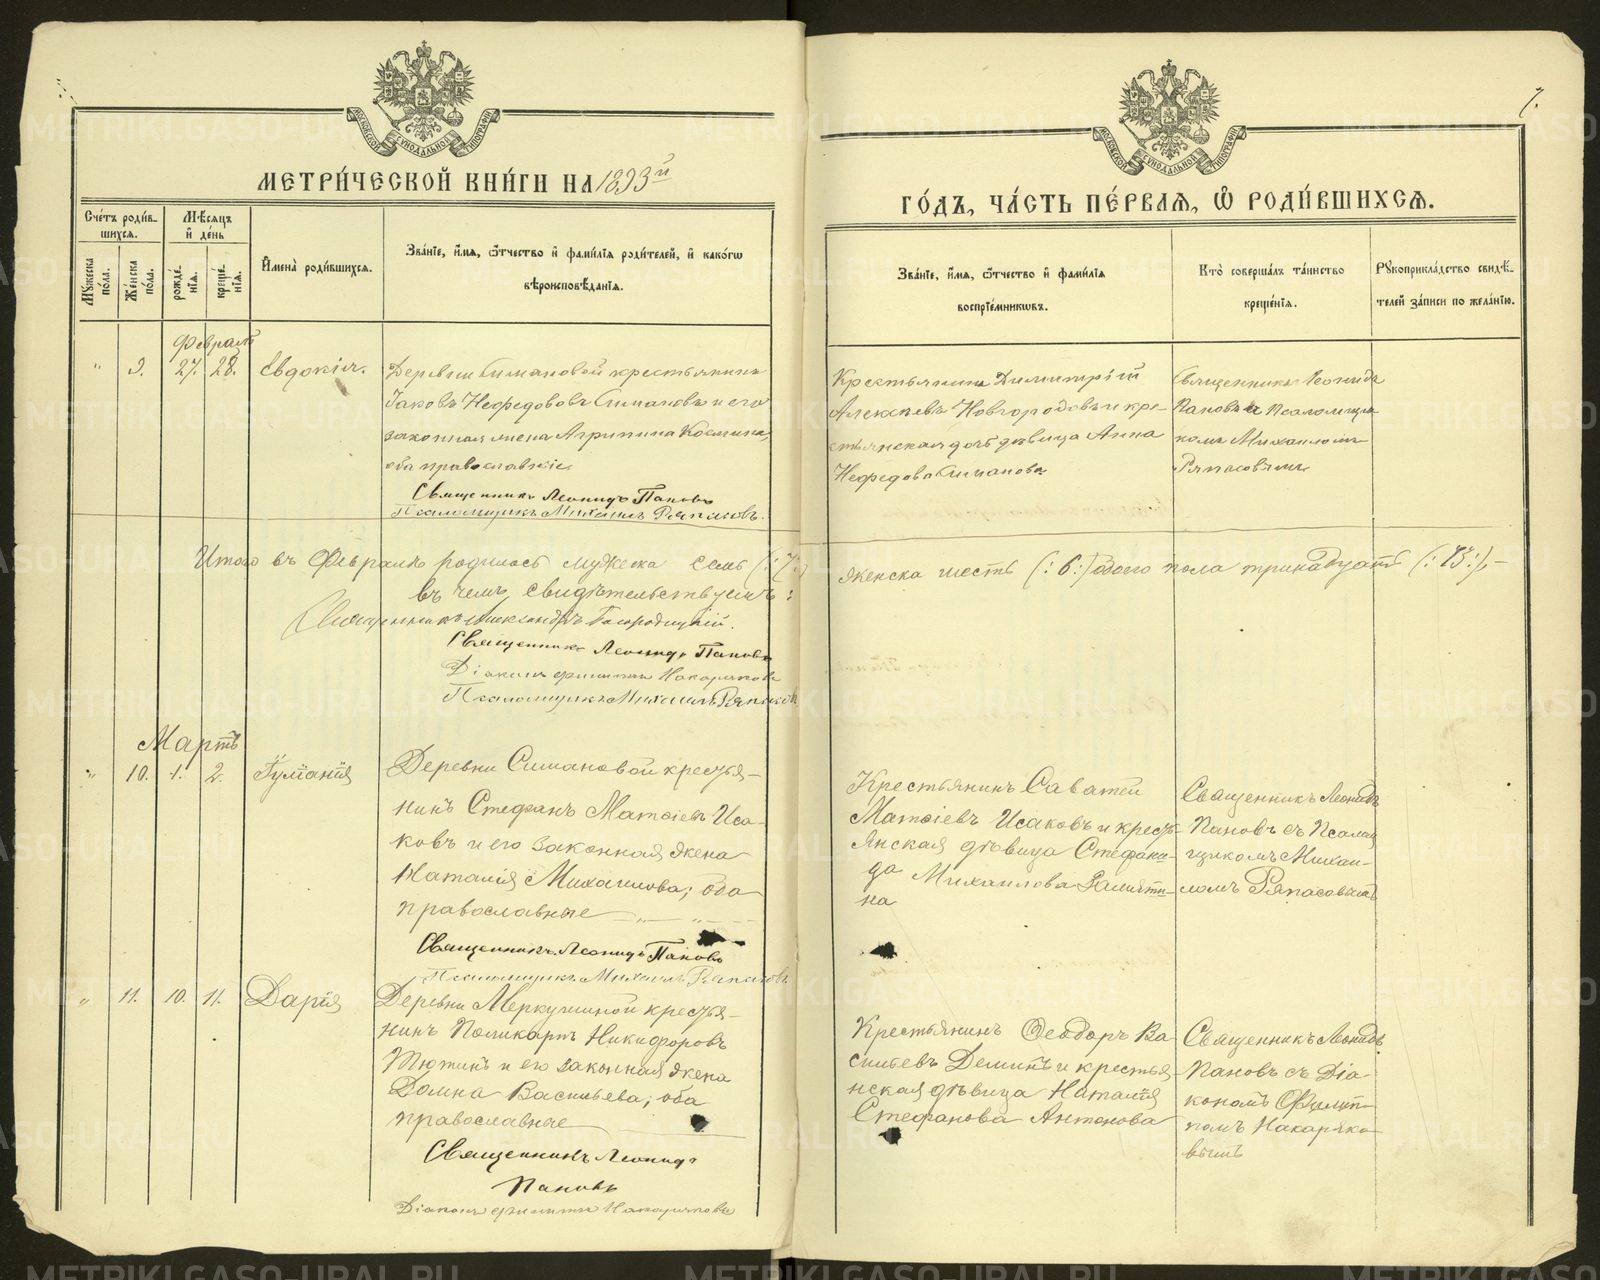 7.
МЕТРИ́ЧЕСКОЙ КНИ́ГИ НА 1893й
ГО́ДЪ, ЧА́СТЬ ПЕ́РВАЯ, Ѡ РОДИ́ВШИХСЯ.
МОСКОВСКОЙ СУНОДАЛЬНОЙ ТИПОГРАФІИ
МОСКОВСКОЙ СУНОДАЛЬНОЙ ТИПОГРАФІИ
Сче́тъ роди́в-
шихся.
Мѣ́сяцъ
и́ де́нь
Му́жеска
по́ла.
Же́нска
по́ла.
рожде́-
нїя.
креще́-
нїя.
Имена̀ роди́вшихся.
Зва́нїе, и́мя, ѻ́тчество и́ фами́лїя роди́телей, и́ како́гѡ
вѣроисповѣ́данїя.
Зва́нїе, и́мя, ѻ́тчество и́ фами́лїя
воспрїе́мникѡвъ.
Кто̀ соверша́лъ та́инство
креще́нїя.
Рукоприкла́дство свидѣ́-
телей за́писи по жела́нїю.
Февраль
" 9. 27. 28. Евдокія.
Деревни Симановой крестьянинъ
Іаковъ Нефедовъ Симановъ и его
законная жена Агрипина Космина,
оба православніе
Священникъ Леонидъ Пановъ
Псаломщикъ Михаилъ Ряпасовъ.
Крестьянинъ Димитрій
Алексѣевъ Новгородовъ и кре-
стьянская дочь дѣвица Анна
Нефедова Симанова
Священникъ Леонидъ
Пановъ съ Псаломщи-
комъ Михаиломъ
Ряпасовымъ
Итого въ Февралѣ родилось мужеска семь (:7:)
женска шесть (:6:) обоего пола тринадцать (:13:),
въ чемъ свидѣтельствуемъ:
Священникъ Александръ Богородицкій.
Священникъ Леонидъ Пановъ
Діаконъ Филиппъ Накаряковъ
Псаломщикъ Михаилъ Ряпасовъ
Мартъ
" 10. 1. 2. Іуліанія
Деревни Симановой крестья-
нинъ Стефанъ Матѳіевъ Иса-
ковъ и его законная жена
Наталія Михаилова; оба
православные
Священникъ Леонидъ Пановъ
Псаломщикъ Михаилъ Ряпасовъ
Крестьянинъ Саватей
Матѳіевъ Исаковъ и кресть-
янская дѣвица Стефани-
да Михаилова Замяти-
на
Священникъ Леонидъ
Пановъ съ Псалом
щикомъ Михаи-
ломъ Ряпасовымъ
" 11. 10. 11. Дарія
Деревни Меркушиной крестья-
нинъ Поликарпъ Никифоровъ
Тютинъ и его законная жена
Домна Васильева; оба
православные
Священникъ Леонидъ
Пановъ
Діаконъ Филиппъ Накаряковъ
Крестьянинъ Ѳеодоръ Ва
сильевъ Деминъ и крестья-
нская дѣвица Наталія
Стефанова Антонова
Священникъ Леонидъ
Пановъ съ Діа-
кономъ Филип-
помъ Накаряко-
вымъ
METRIKI.GASO-URAL.RU